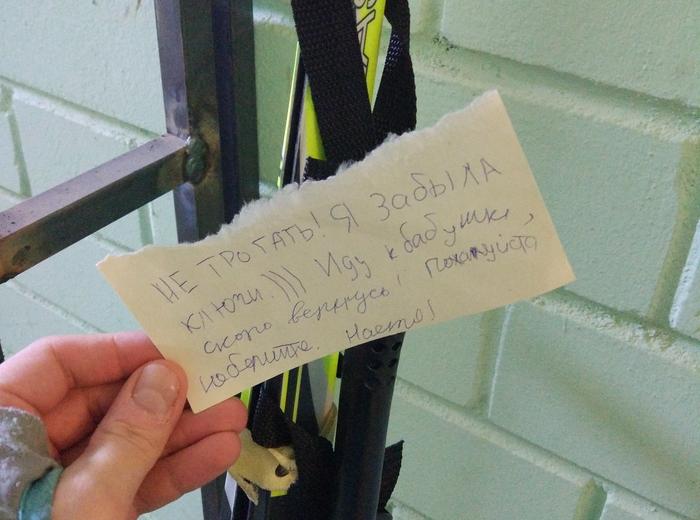 НЕ ТРОГАТЬ! Я ЗАБЫЛА
КЛЮЧИ.))) Иду к бабушке,
скоро вернусь! Пожалуйста
наберите. Настя!